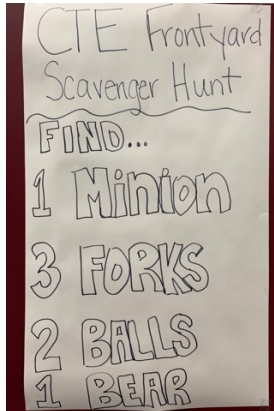 CTE Frontyard
Scavenger Hunt
FIND...
1 Minion
3 FORKS
2 BALLS
1 BEAR